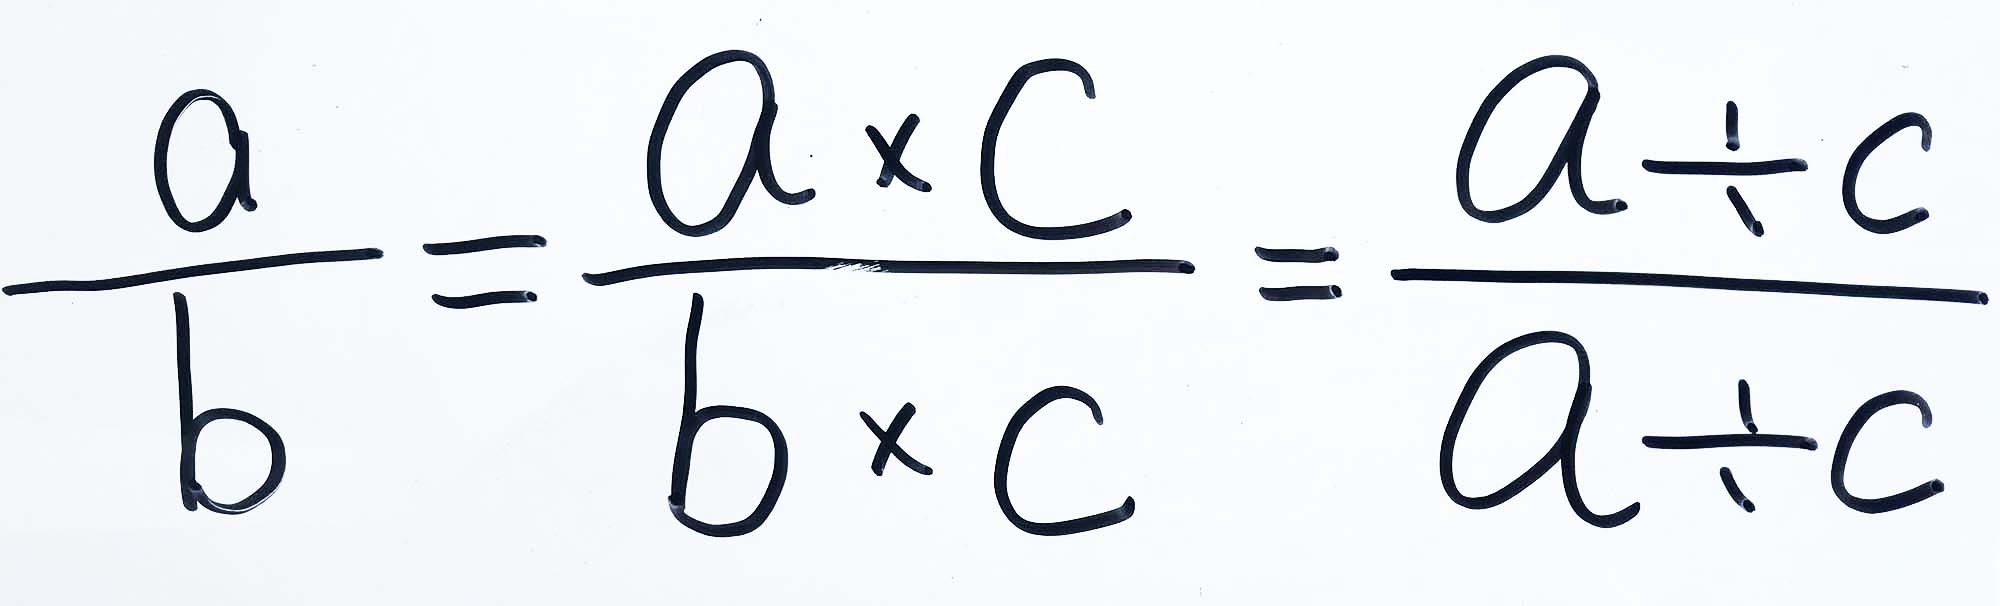 a/b = (a × c)/(b × c) = (a ÷ c)/(a ÷ c)